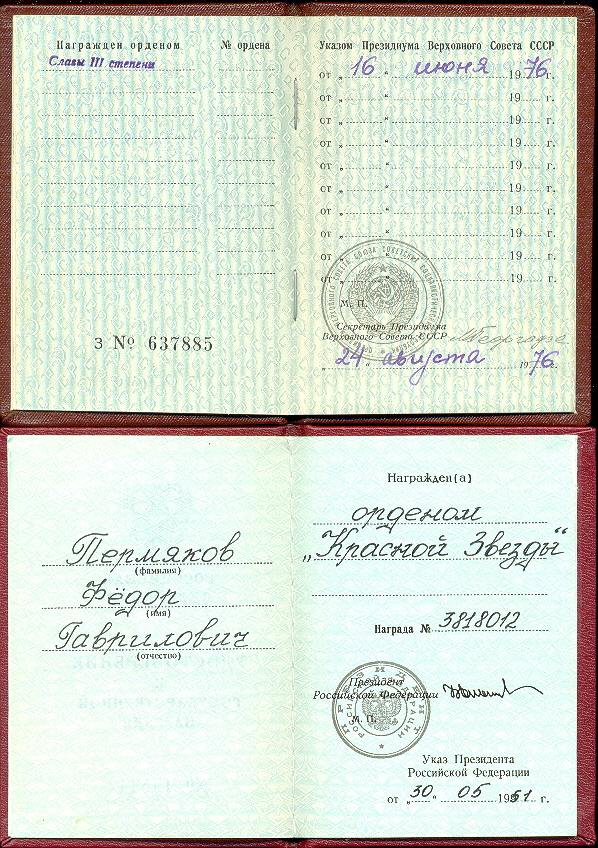 Награжден орденом № ордена
Славы III степени
Указом Президиума Верховного Совета СССР
от „ 16 “ июня 1976 г.
от „ “ 19 г.
от „ “ 19 г.
от „ “ 19 г.
от „ “ 19 г.
от „ “ 19 г.
от „ “ 19 г.
от „ “ 19 г.
от „ “ 19 г.
от „ “ 19 г.
М. П.
Секретарь Президиума
Верховного Совета СССР
„ 24 “ августа 1976 г.
З № 637885
Пермяков
(фамилия)
Фёдор
(имя)
Гаврилович
(отчество)
Награжден(а)
орденом
„Красной Звезды“
Награда № 3818012
Президент
Российской Федерации
М. П.
ПРЕЗИДЕНТ
РОССИЙСКОЙ ФЕДЕРАЦИИ
Указ Президента
Российской Федерации
от „ 30 “ 05 1951 г.